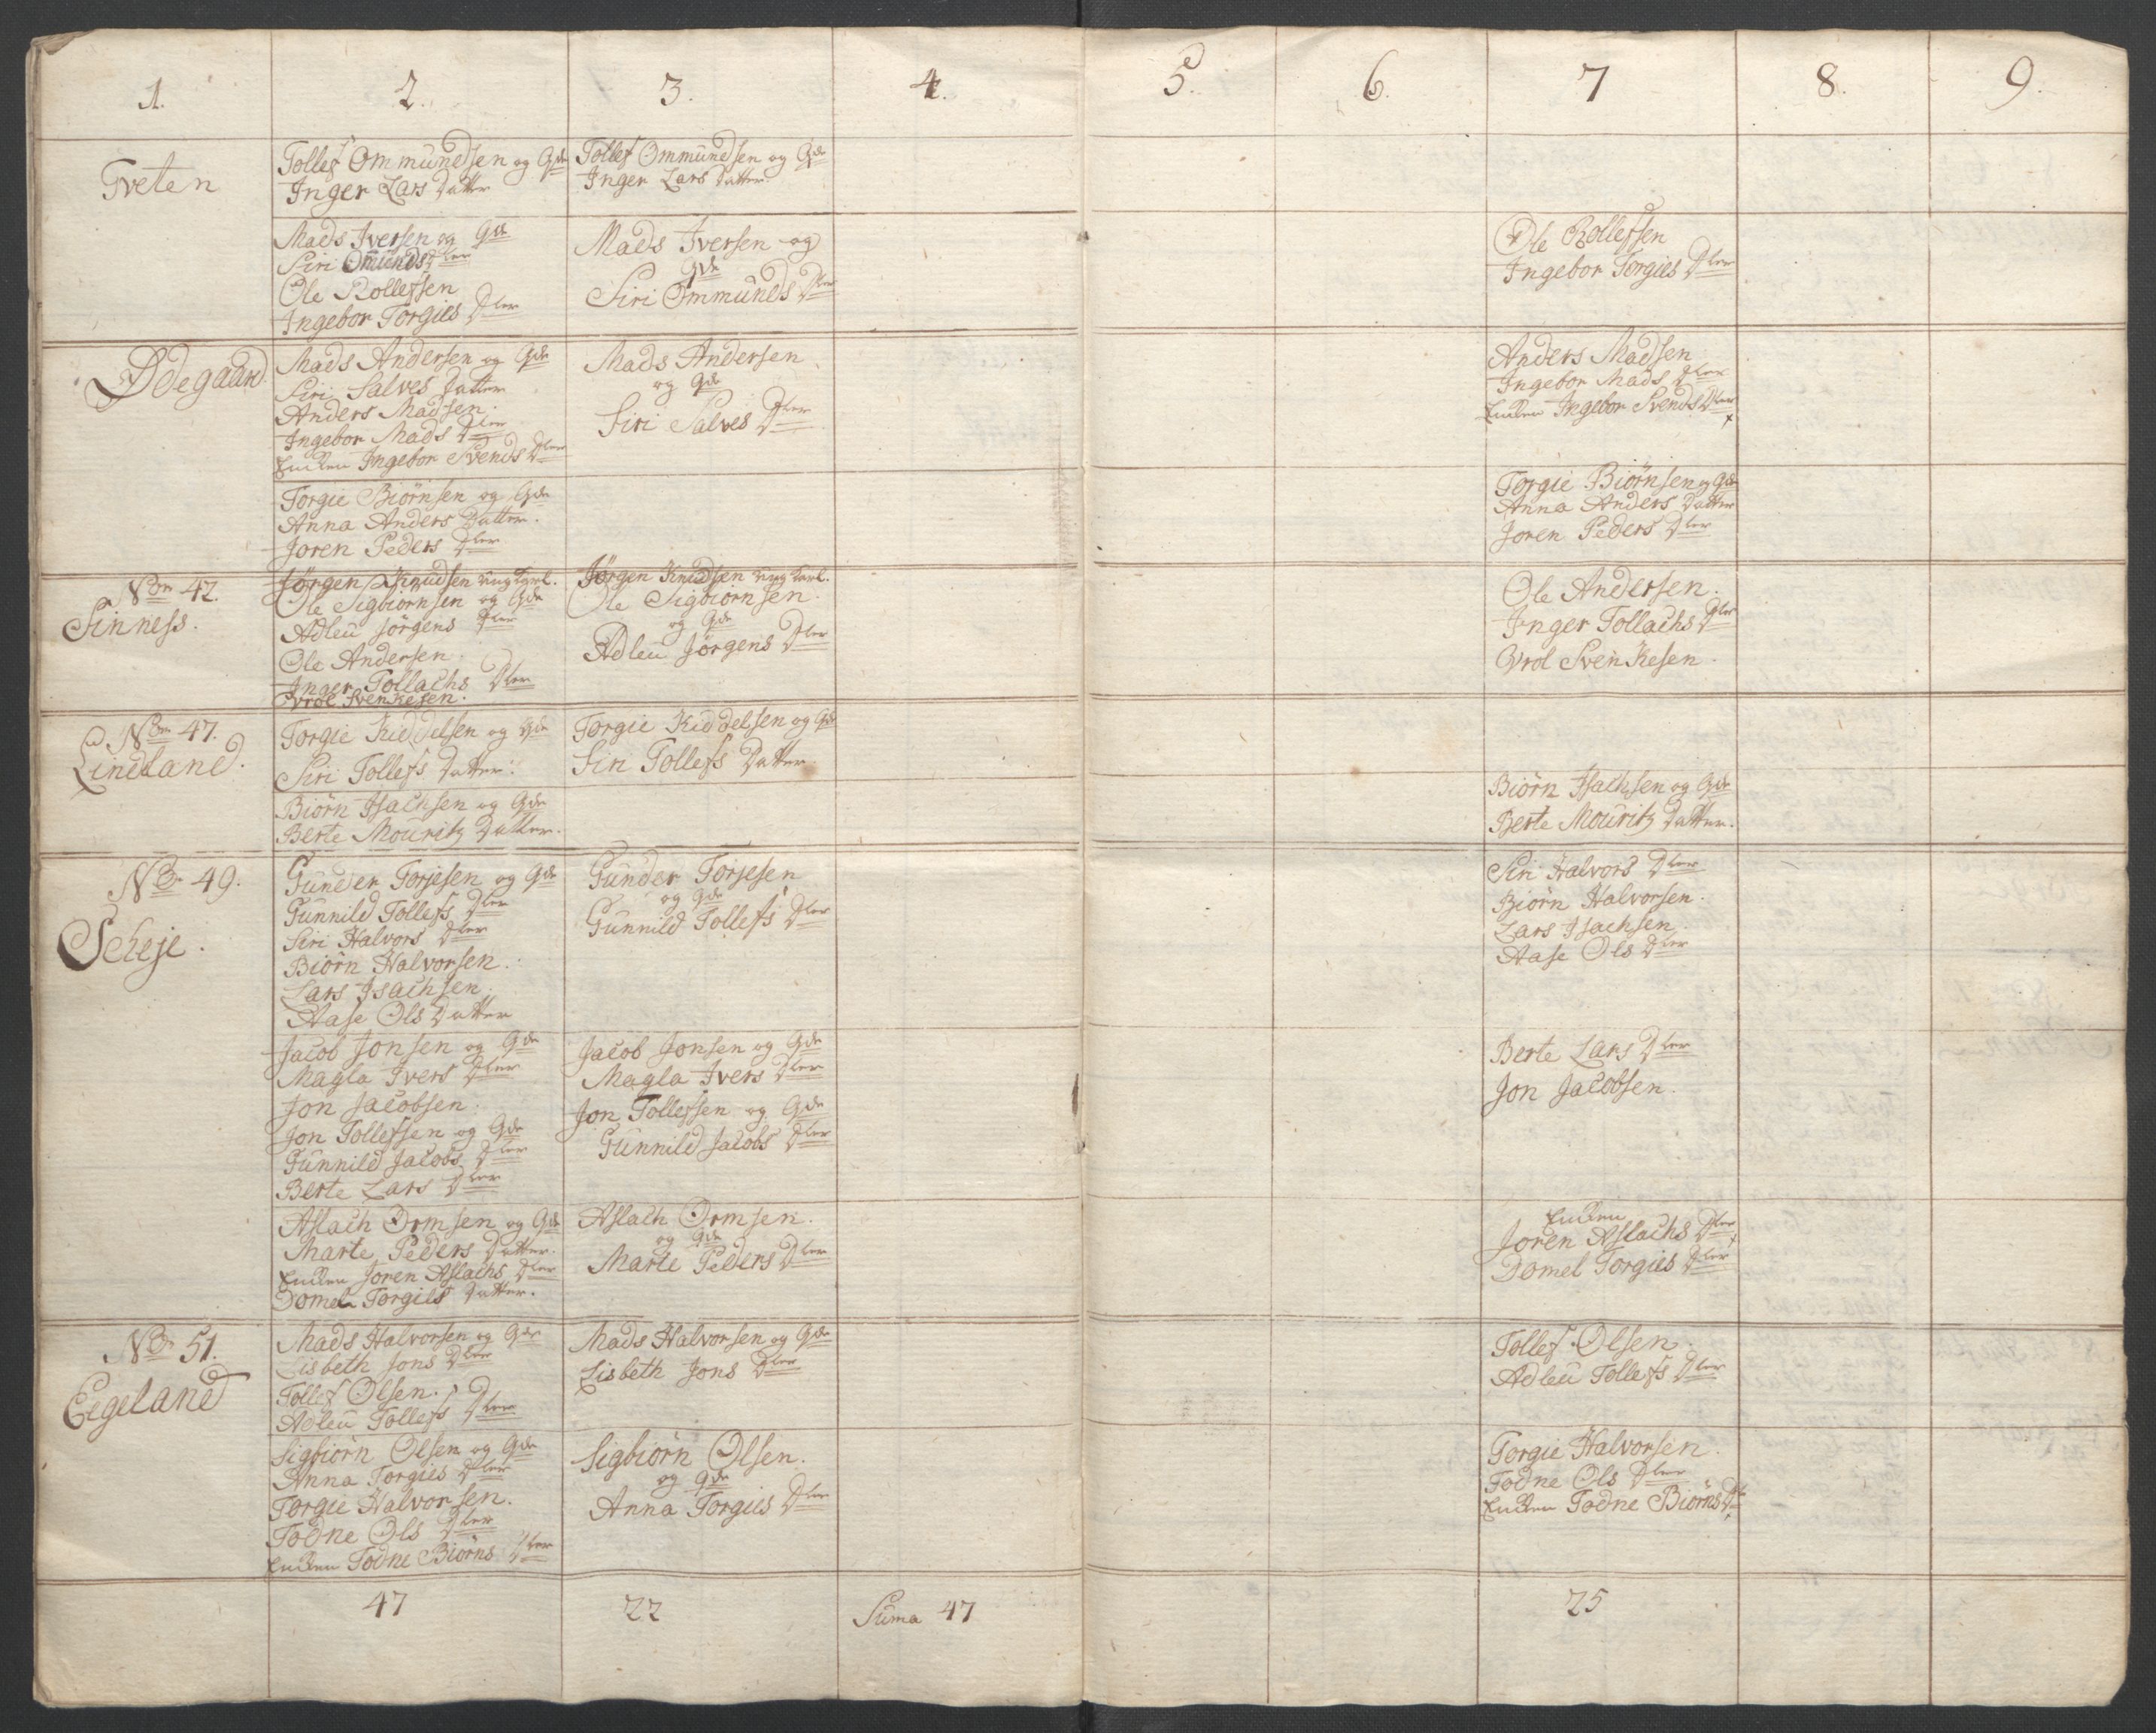 1.
2.
3.
4.
5.
6.
7
8.
9.
Tveten
Tollef Ommundsen og Gde
Inger Lars Datter
Tollef Ommundsen og Gde
Inger Lars Datter.
Mads Iversen og Gde
Siri Omunds Dter
Ole Rollefsen
Ingebor Torgies Dter
Mads Iversen og
Gde
Siri Ommunds Dter
Ole Rollefsen
Ingebor Torgies Dter
Ødegaard.
Mads Andersen og Gde
Siri Salves Datter
Anders Madsen.
Ingebor Mads Dter
Enken Ingebor Svends Dter
Mads Andersen
og Gde
Siri Salves Dter
Anders Madsen
Ingebor Mads Dter
Enken Ingebor Svends Dter
Torgie Biørnsen og Gde
Anna Anders Datter.
Joren Peders Dter
Torgie Biørnsen og Gde
Anna Anders Datter
Joren Peders Dter
No 42.
Sinness.
Jørgen Knudsen ung Karl.
Ole Sigbiørnsen og Gde
Adleu Jørgens Dter
Ole Andersen.
Inger Tollachs Dter
Vrol Svenkesen.
Jørgen Knudsen ung Karl.
Ole Sigbiørnsen.
og Gde
Adleu Jørgens Dter
Ole Andersen.
Inger Tollachs Dter
Vrol Svenkesen.
No 47.
Lindland.
Torgie Kiddelsen og Gde
Siri Tollefs Datter.
Torgie Kiddelsen og Gde
Siri Tollefs Datter.
Biørn Isachsen og Gde
Berte Mouritz Datter.
Biørn Isachsen og Gde
Berte Mouritz Datter.
No 49.
Scheje.
Gunder Torjesen og Gde
Gunnild Tollefs Dter
Siri Halvors Dter
Biørn Halvorsen.
Lars Isachsen.
Aase Ols Datter
Gunder Torjesen
og Gde
Gunnild Tollefs Dter
Siri Halvors Dter
Biørn Halvorsen.
Lars Isachsen
Aase Ols Dter
Jacob Jonsen og Gde
Magla Ivers Dter
Jon Jacobsen.
Jon Tollefsen og Gde
Gunnild Jacobs Dter
Berte Lars Dter
Jacob Jonsen og Gde
Magla Ivers Dter
Jon Tollefsen og Gde
Gunnild Jacobs Dter
Berte Lars Dter
Jon Jacobsen.
Aslach Ormsen og Gde
Marte Peders Datter.
Enken Joren Aslachs Dter
Domel Torgils Datter.
Aslach Ormsen.
og Gde
Marte Peders Dter
Enken
Joren Aslachs Dter
Domel Torgies Dter
No 51.
Eegeland
Mads Halvorsen og Gde
Lisbeth Jons Dter
Tollef Olsen.
Adleu Tollefs Dter
Mads Halvorsen og Gde
Lisbeth Jons Dter
Tollef Olsen.
Adleu Tollefs Dter
Sigbiørn Olsen og Gde
Anna Torgies Dter
Torgie Halvorsen.
Todne Ols Dter
Enken Todne Biørns Dter
Sigbiørn Olsen.
og Gde
Anna Torgies Dter
Torgie Halvorsen.
Todne Ols Dter
Enken Todne Biørns Dter
47
22
Suma 47
25